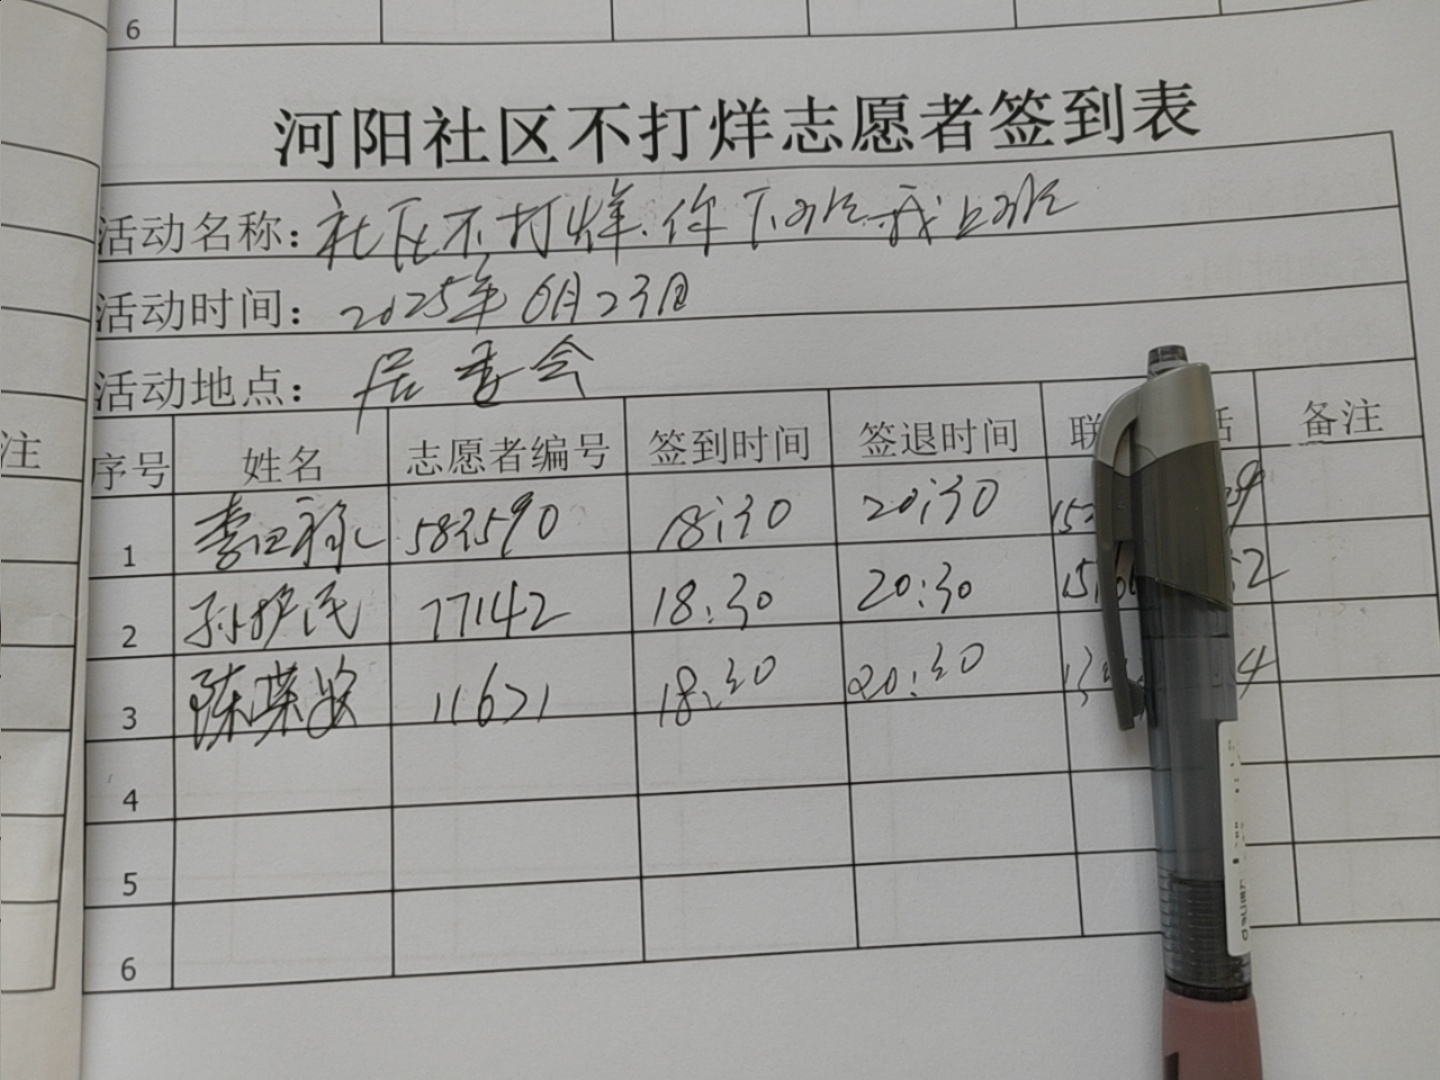 6
河阳社区不打烊志愿者签到表
活动名称：社区不打烊.你下班我上班
活动时间：2025年6月23日
活动地点：居委会
注
序号 姓名 志愿者编号 签到时间 签退时间 联 话 备注
1 李 583590 18:30 20:30 15 9
2 孙护民 77142 18:30 20:30 15 52
3 陈荣 11621 18:30 20:30 13 4
4
5
6